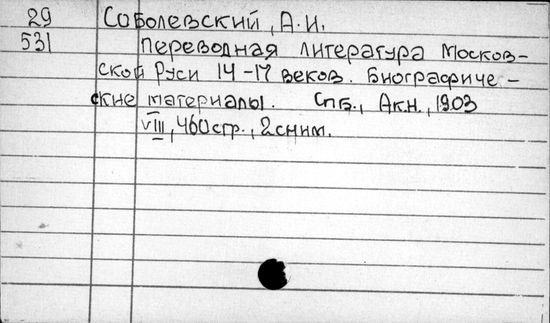 29 Соболевский, А.И.
531 Переводная литература Москов-
ской Руси 14-17 веков. Биографиче-
ские материалы. Спб., Ак.Н., 1903
VIII, 460стр., 2сним.